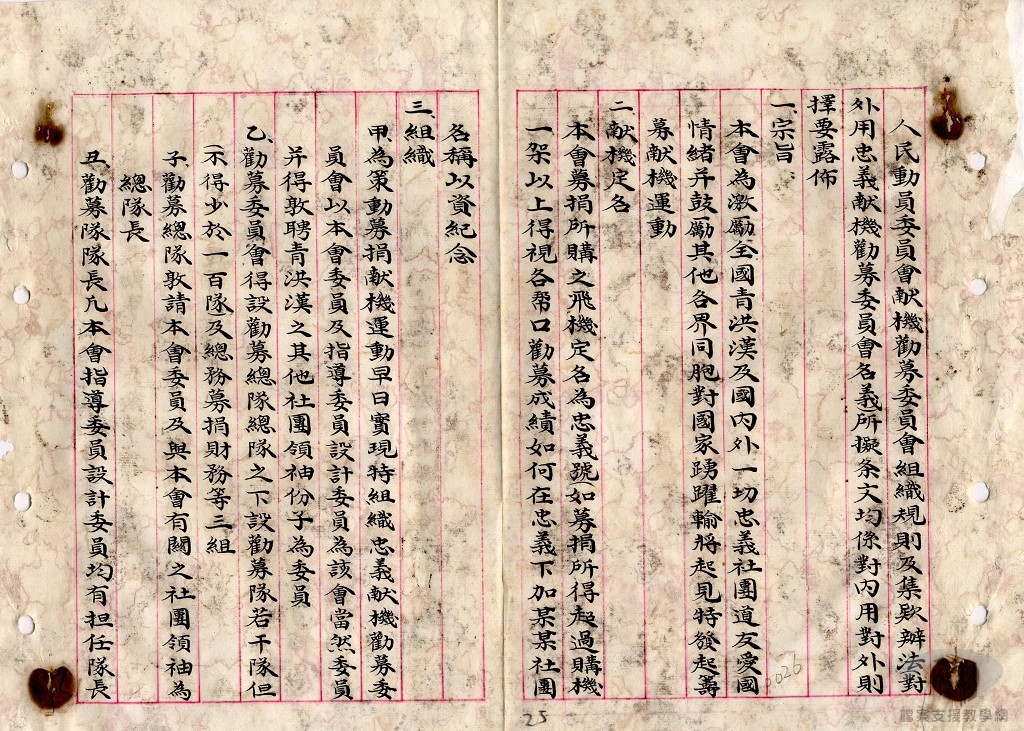 人民動員委員會献機勸募委員會組織規則及集欵辦法對
外用忠義献機勸募委員會名義所擬条文均係對內用對外則
擇要露佈
一、宗旨、
本會為激勵全國青洪漢及國內外一切忠義社團道友愛國
情緒并鼓勵其他各界同胞對國家踴躍輸將起見特發起籌
募献機運動
二、献機定名
本會募捐所購之飛機定名為忠義號(如募捐所得超過購機
一架以上得視各幇口勸募成績如何在忠義下加某某社團
名稱以資紀念
三、組織
甲、為策動募捐献機運動早日實現特組織忠義献機勸募委
員會以本會委員及指導委員設計委員為該會當然委員
并得敦聘青洪漢之其他社團領袖份子為委員
乙、勸募委員會得設勸募總隊總隊之下設勸募隊若干隊但
(不得少於一百隊)及總務募捐財務等三組
子、勸募總隊敦請本會委員及與本會有關之社團領袖為
總隊長
丑、勸募隊隊長凢本會指導委員設計委員均有担任隊長
25
0026
檔案支援教學網